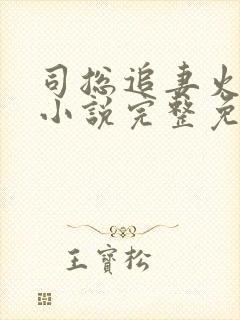 司总追妻火
小说完整免
王寶松